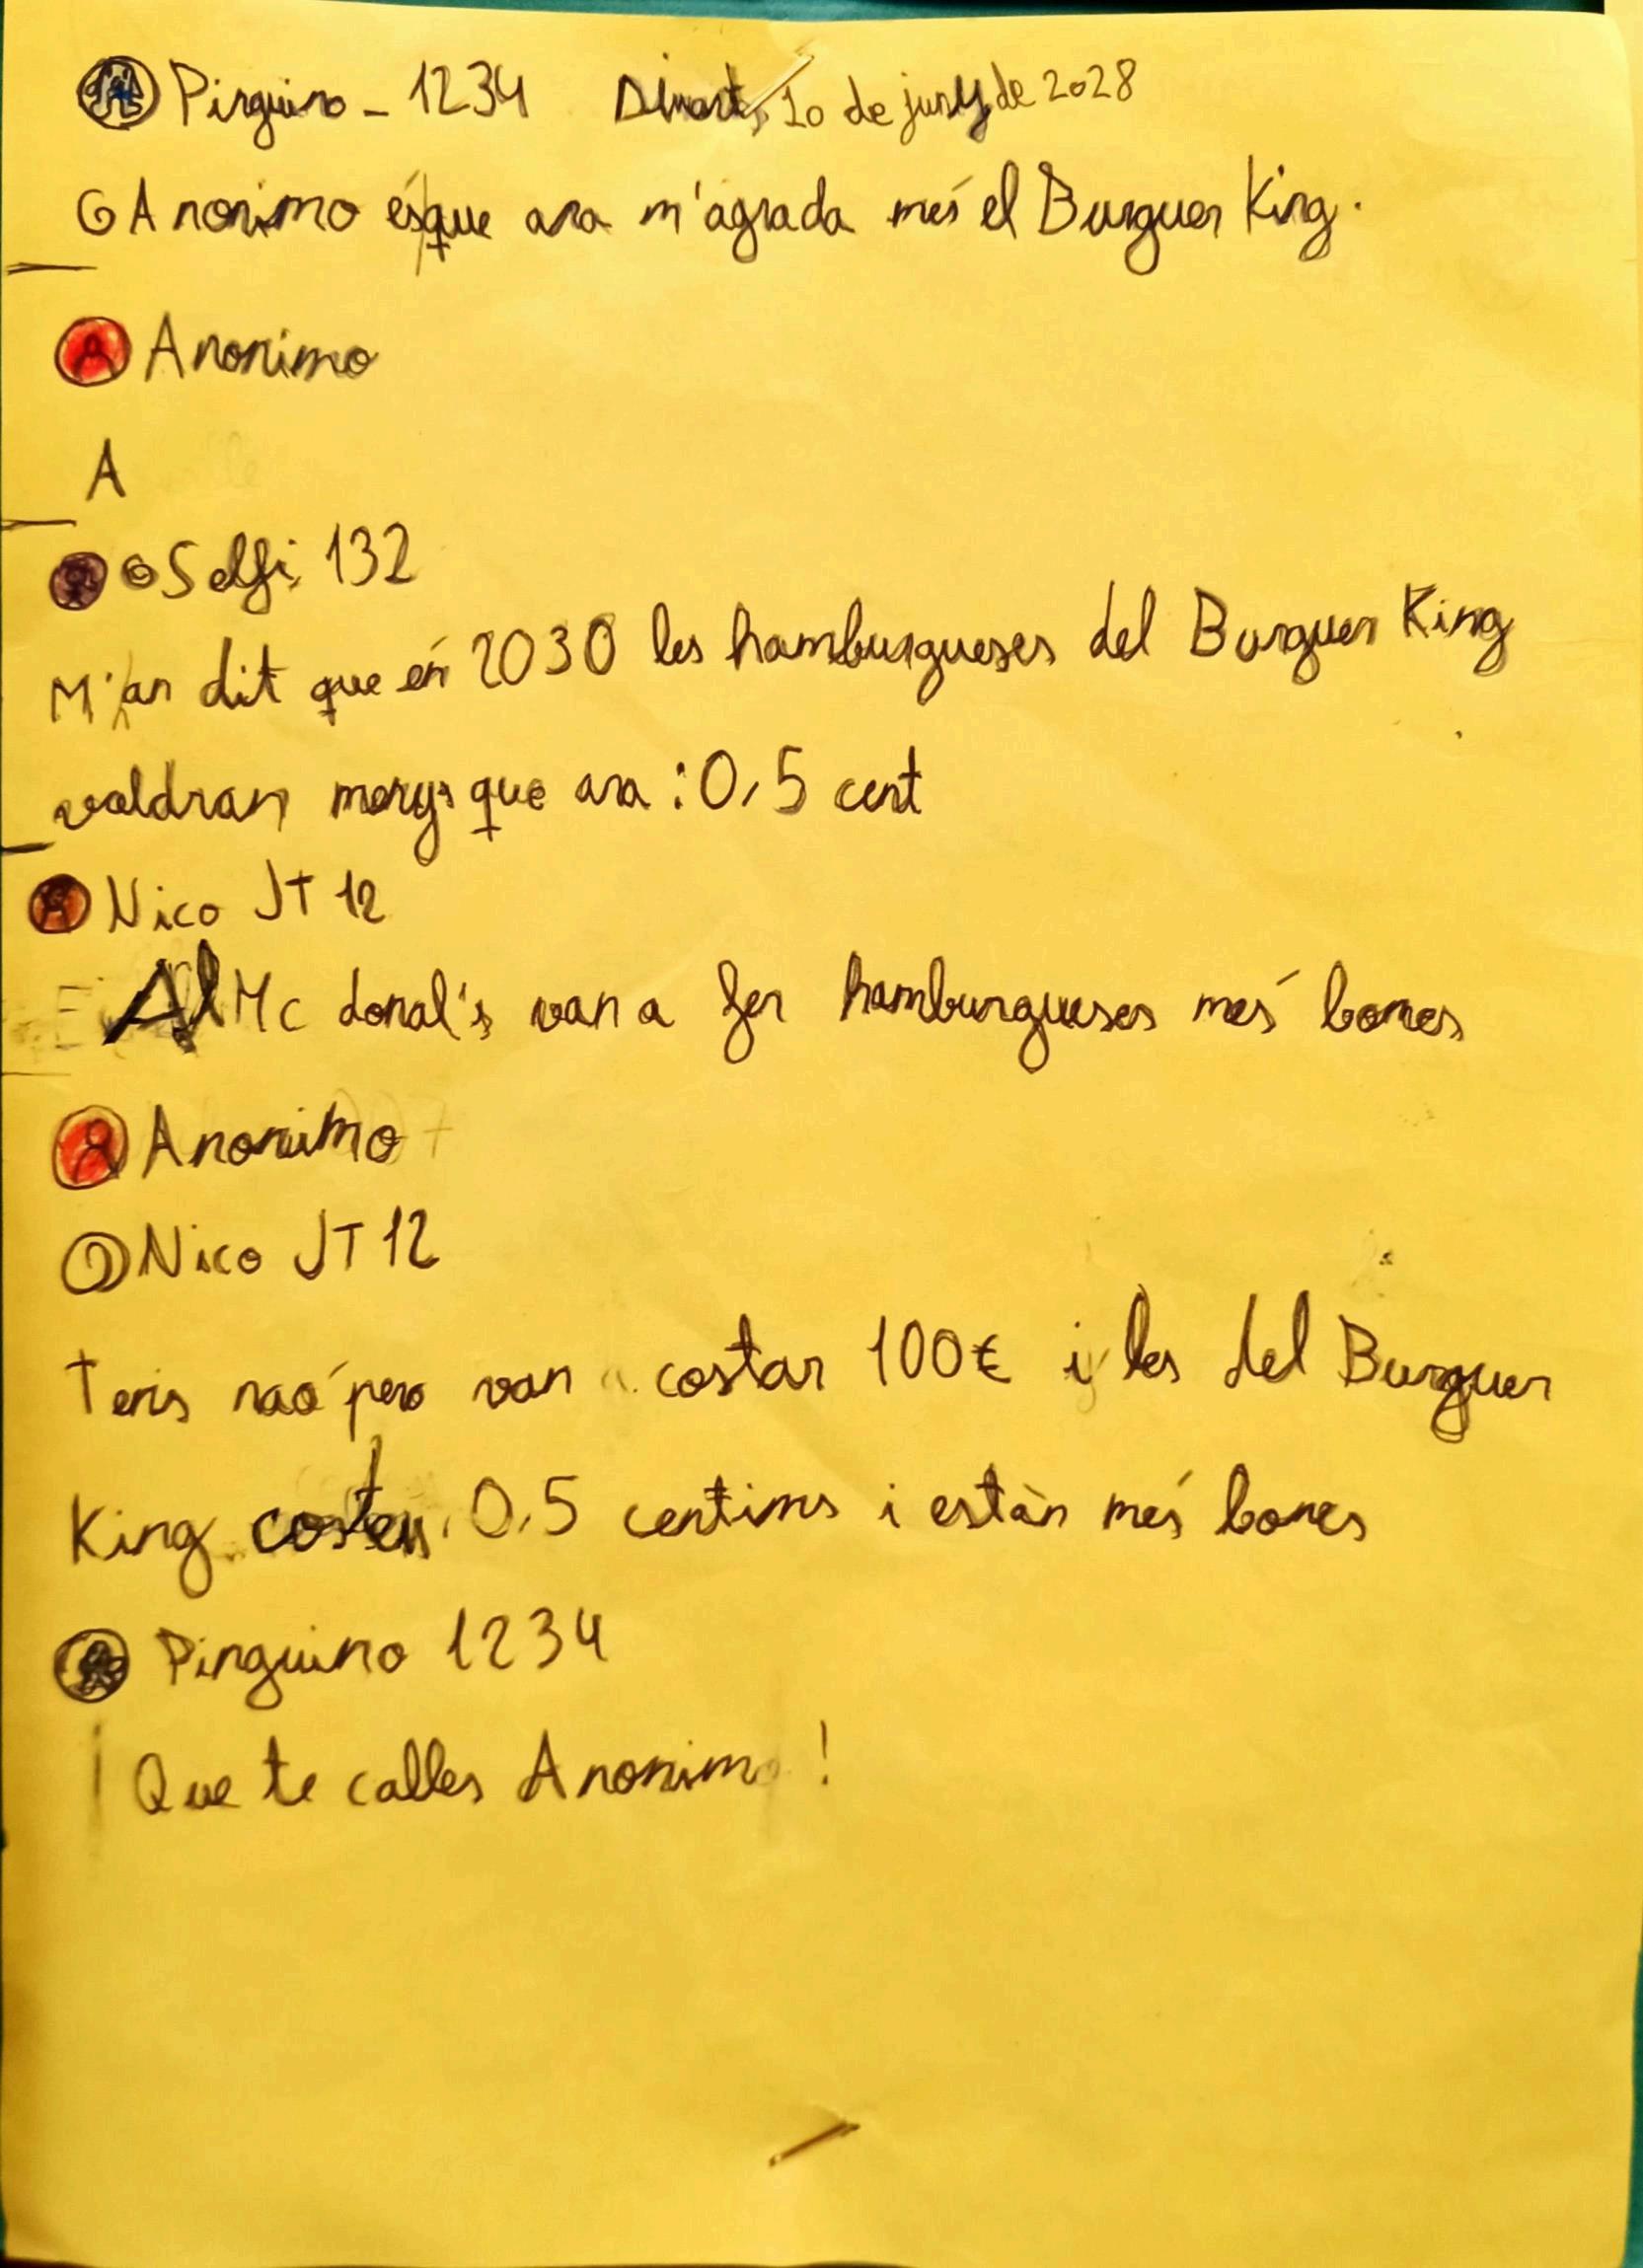 Pinguino - 1234 Dimarts, 10 de juny de 2028
@Anonimo és que ara m'agrada més el Burguer King.
Anonimo
A
@Selfi 132
M'han dit que en 2030 les hamburgueses del Burguer King
valdran menys que ara : 0,5 cent
Nico JT 12
Al Mc donal's van a fer hamburgueses més bones
Anonimo
@Nico JT 12
Tens raó pero van a costar 100€ i les del Burguer
King costen 0,5 centims i estàn més bones
Pinguino 1234
¡Que te calles Anonimo!